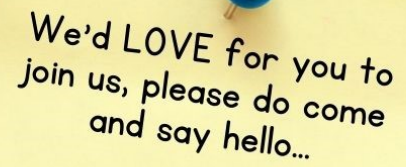 We'd LOVE for you to
join us, please do come
and say hello...